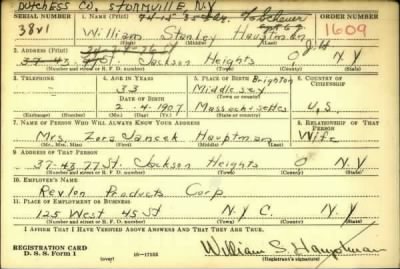 Dutchess Co, Stormville, N.Y
94-15 35 Ave. % Scheuer
SERIAL NUMBER 1. NAME (Print) ORDER NUMBER
38v1 William Stanley Hauptman 1609
(First) (Middle) (Last)
2. ADDRESS (Print)
37-43 St. Jackson Heights Q N Y
(Number and street or R. F. D. number) (Town) (County) (State)
3. TELEPHONE 4. AGE IN YEARS 5. PLACE OF BIRTH 6. COUNTRY OF CITIZENSHIP
33 Brighton
Middlesex
DATE OF BIRTH (Town or county)
2 - 4 - 1907 Massachusettes U, S
(Exchange) (Number) (Mo.) (Day) (Yr.) (State or country)
7. NAME OF PERSON WHO WILL ALWAYS KNOW YOUR ADDRESS 8. RELATIONSHIP OF THAT PERSON
Mrs. Zora Hauptman Wife
(Mr., Mrs., Miss) (First) (Middle) (Last)
9. ADDRESS OF THAT PERSON
37-43-77 St. Jackson Heights Q N Y
(Number and street or R. F. D. number) (Town) (County) (State)
10. EMPLOYER'S NAME
Revlon Products Corp
11. PLACE OF EMPLOYMENT OR BUSINESS
125 West 45 St N.Y C. N. Y
(Number and street or R. F. D. number) (Town) (County) (State)
I AFFIRM THAT I HAVE VERIFIED ABOVE ANSWERS AND THAT THEY ARE TRUE.
William S. Hauptman
REGISTRATION CARD
D. S. S. Form 1 (over) 16-17105 (Registrant's signature)